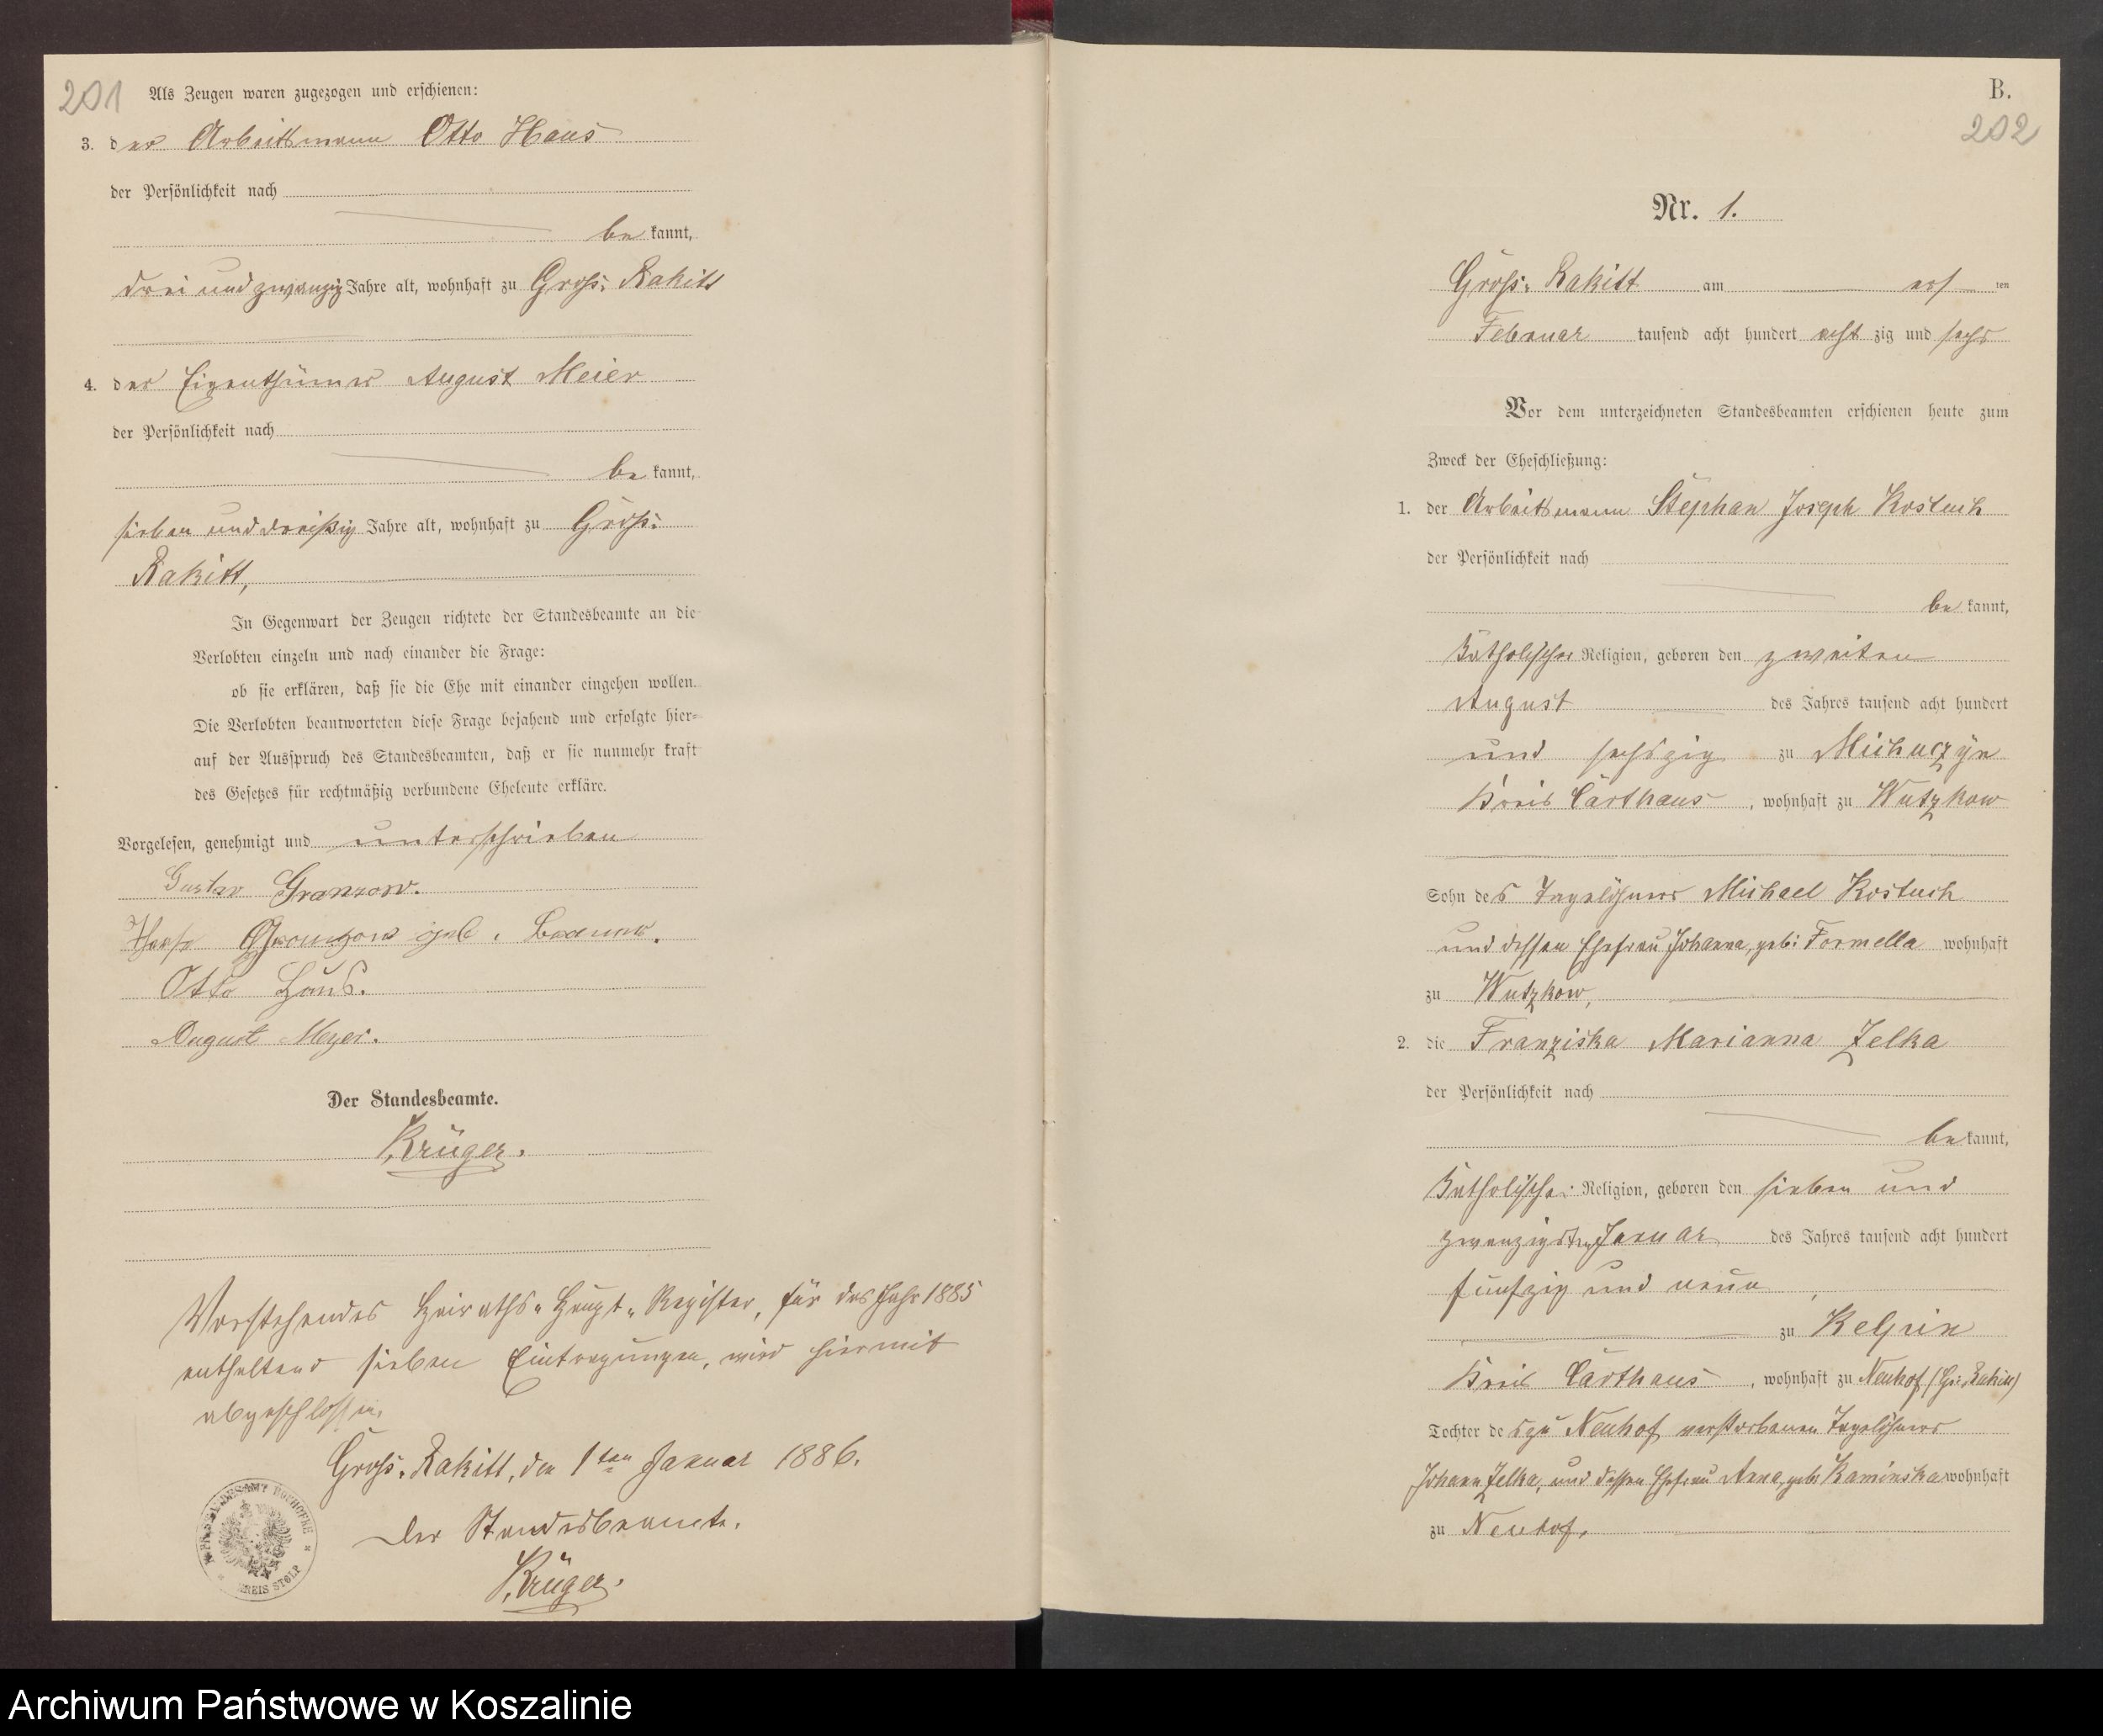 201
Als Zeugen waren zugezogen und erschienen:
3. der Arbeitsmann Otto Haus
der Persönlichkeit nach
be kannt,
drei und zwanzig Jahre alt, wohnhaft zu Groß- Rakitt
4. der Eigenthümer August Meier
der Persönlichkeit nach
be kannt,
sieben und dreißig Jahre alt, wohnhaft zu Groß-
Rakitt,
In Gegenwart der Zeugen richtete der Standesbeamte an die
Verlobten einzeln und nach einander die Frage:
ob sie erklären, daß sie die Ehe mit einander eingehen wollen.
Die Verlobten beantworteten diese Frage bejahend und erfolgte hier-
auf der Ausspruch des Standesbeamten, daß er sie nunmehr kraft
des Gesetzes für rechtmäßig verbundene Eheleute erkläre.
Vorgelesen, genehmigt und unterschrieben
Gustav Granzow.
Granzow geb.
Otto Haus.
August Meyer.
Der Standesbeamte.
Krüger.
Vorstehendes Heiraths-Haupt-Register, für das Jahr 1885
enthaltend sieben Eintragungen, wird hiermit
abgeschlossen.
Groß-Rakitt, den 1ten Januar 1886.
Der Standesbeamte.
Krüger.
KREIS STOLP
B.
202
Nr. 1.
Groß- Rakitt am ersten
Februar tausend acht hundert acht zig und sechs
Vor dem unterzeichneten Standesbeamten erschienen heute zum
Zweck der Eheschließung:
1. der Arbeitsmann Stephan Joseph Kostuch
der Persönlichkeit nach
be kannt,
katholischer Religion, geboren den zweiten
August des Jahres tausend acht hundert
und sechszig zu Michuczyn
Kreis Carthaus, wohnhaft zu Wutzkow
Sohn des Tagelöhners Michael Kostuch
und dessen Ehefrau Johanna, geb: Formella wohnhaft
zu Wutzkow,
2. die Franziska Marianna Zelka
der Persönlichkeit nach
be kannt,
katholischer Religion, geboren den sieben und
zwanzigsten Januar des Jahres tausend acht hundert
fünfzig und neun
zu Kelpin
Kreis Carthaus, wohnhaft zu Neuhof (Gr: Rakitt)
Tochter des zu Neuhof verstorbenen Tagelöhners
Johann Zelka, und dessen Ehefrau Anna, geb: Kaminska wohnhaft
zu Neuhof.
Archiwum Państwowe w Koszalinie